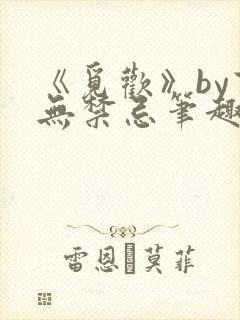 《覓歡》by
無禁忌筆趣
雷恩 莫菲